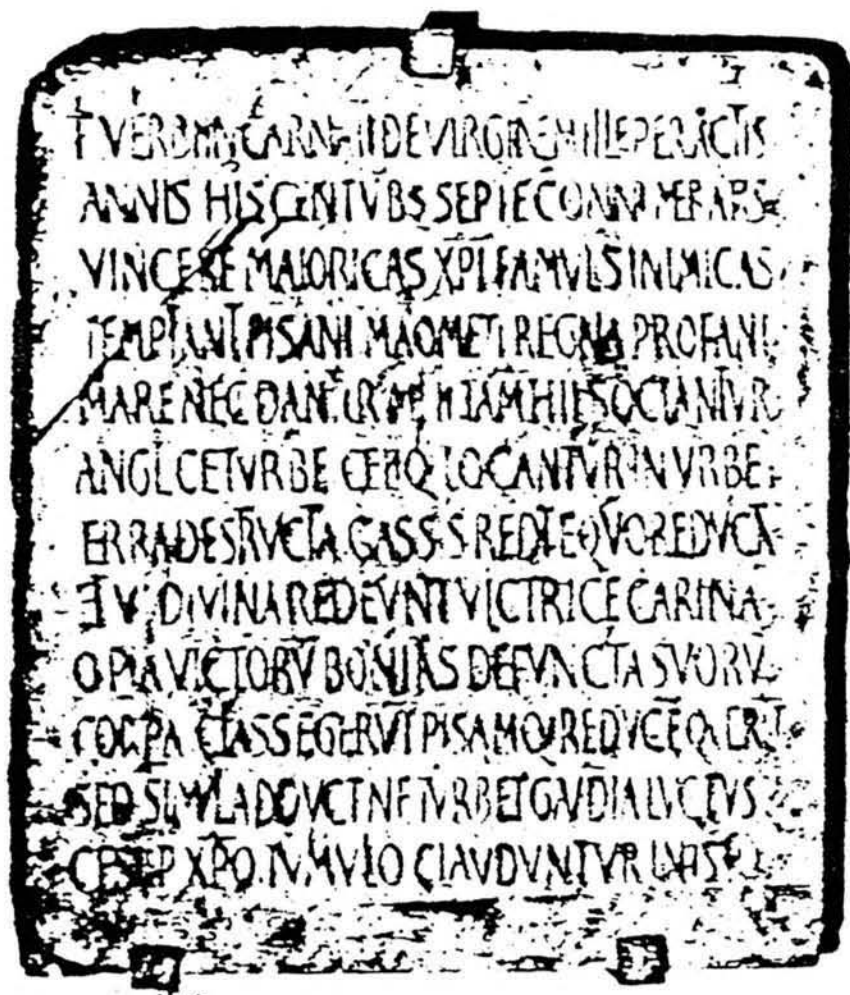 † VERBI INCARNATI DE VIRGINE MILLE PERACTIS
ANNIS HIS CENTVBS SEPTE CONNVMERA
VINCERE MAIORICAS XPI FAMVLIS INIMICAS
TEMPTANT PISANI MAOMETI REGNA PROFANI
MARE NEC DANTUR TAM HII SOCIANTVR
ANGLCE TVRBE CELIQ LOCANTVR IN VRBE
ERRA DESTRVCTA CLASSIS REDIT EQVORE DVCTA
DIVINA REDEVNT VICTRICE CARINA
O PIA VICTORV BONITAS DEFVNCTA SVORV
CORPA CLASSE GERVT PISAMQ REDVCE QVERT
SED SIMVL ADDVCT NE TVRBET GAVDIA LVCTVS
CESI P XPO TVMVLO CLAVDVNTVR IN ISTO